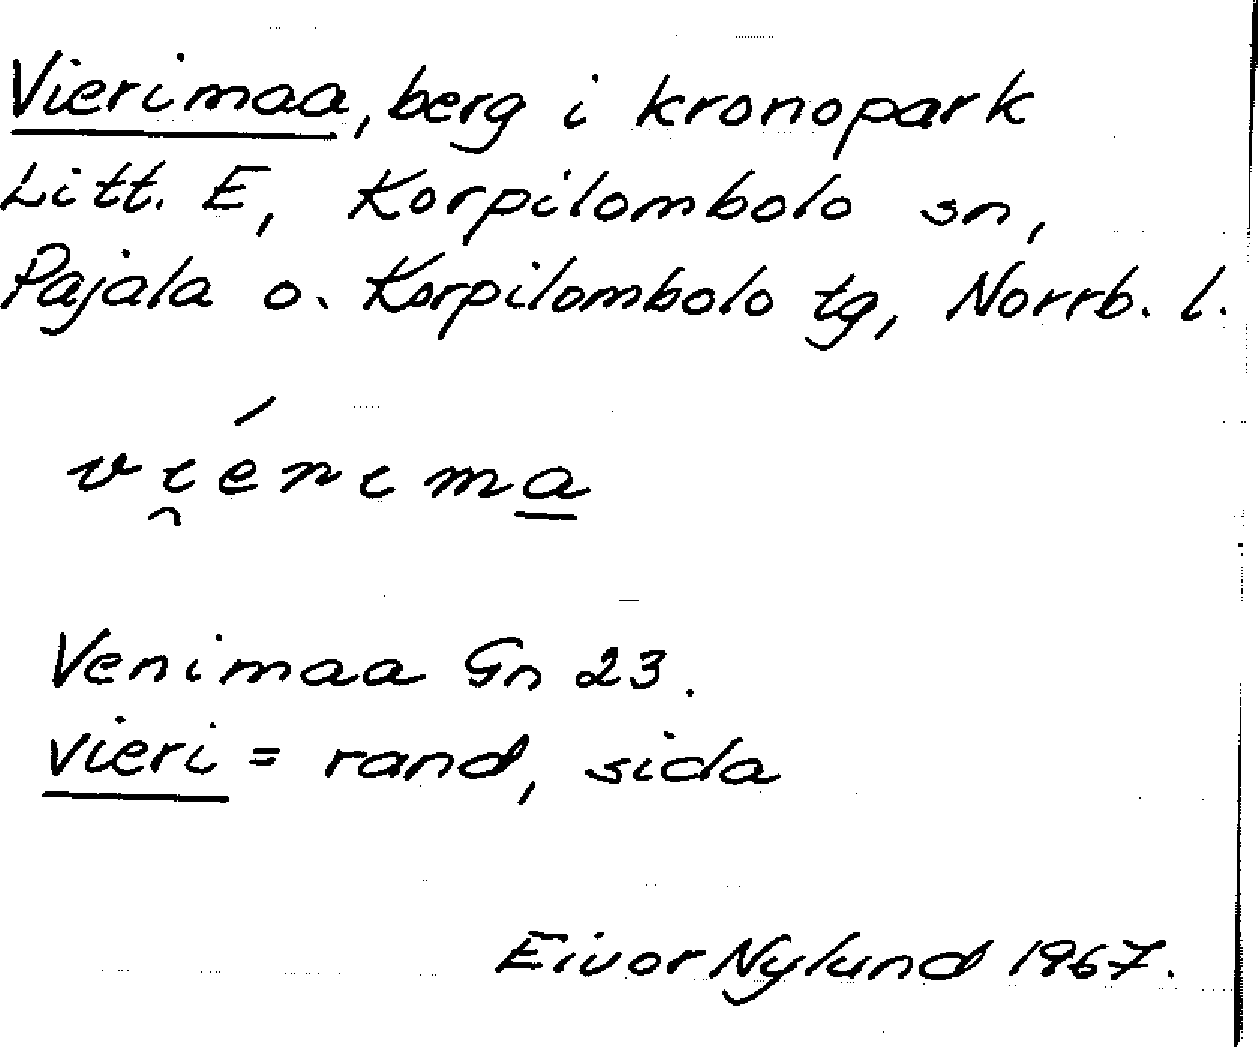 Vierimaa, berg i kronopark
Litt. E, Korpilombolo sn,
Pajala o. Korpilombolo tg, Norrb. l.
vi̯érima̲
Venimaa Gn 23.
vieri = rand, sida
Eivor Nylund 1967.